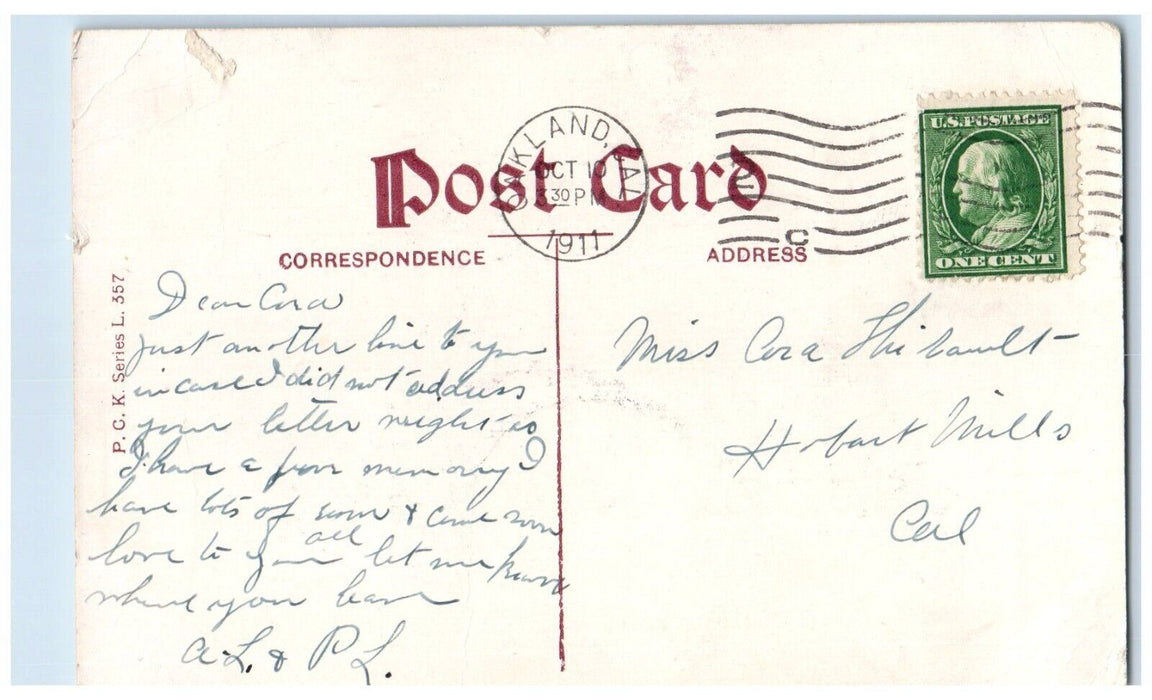 Post Card
OAKLAND, CAL
OCT 10
3 30 PM
1911
C
U.S. POSTAGE
ONE CENT
CORRESPONDENCE
ADDRESS
P. C. K. Series L. 357
Dear Cora
just another line to you
in case I did not address
your letter wright as
I have a poor memory I
have lots of room & come soon
love to you all let me know
where you leave
A. L. & P L.
Miss Cora Thibault
Hobart Mills
Cal